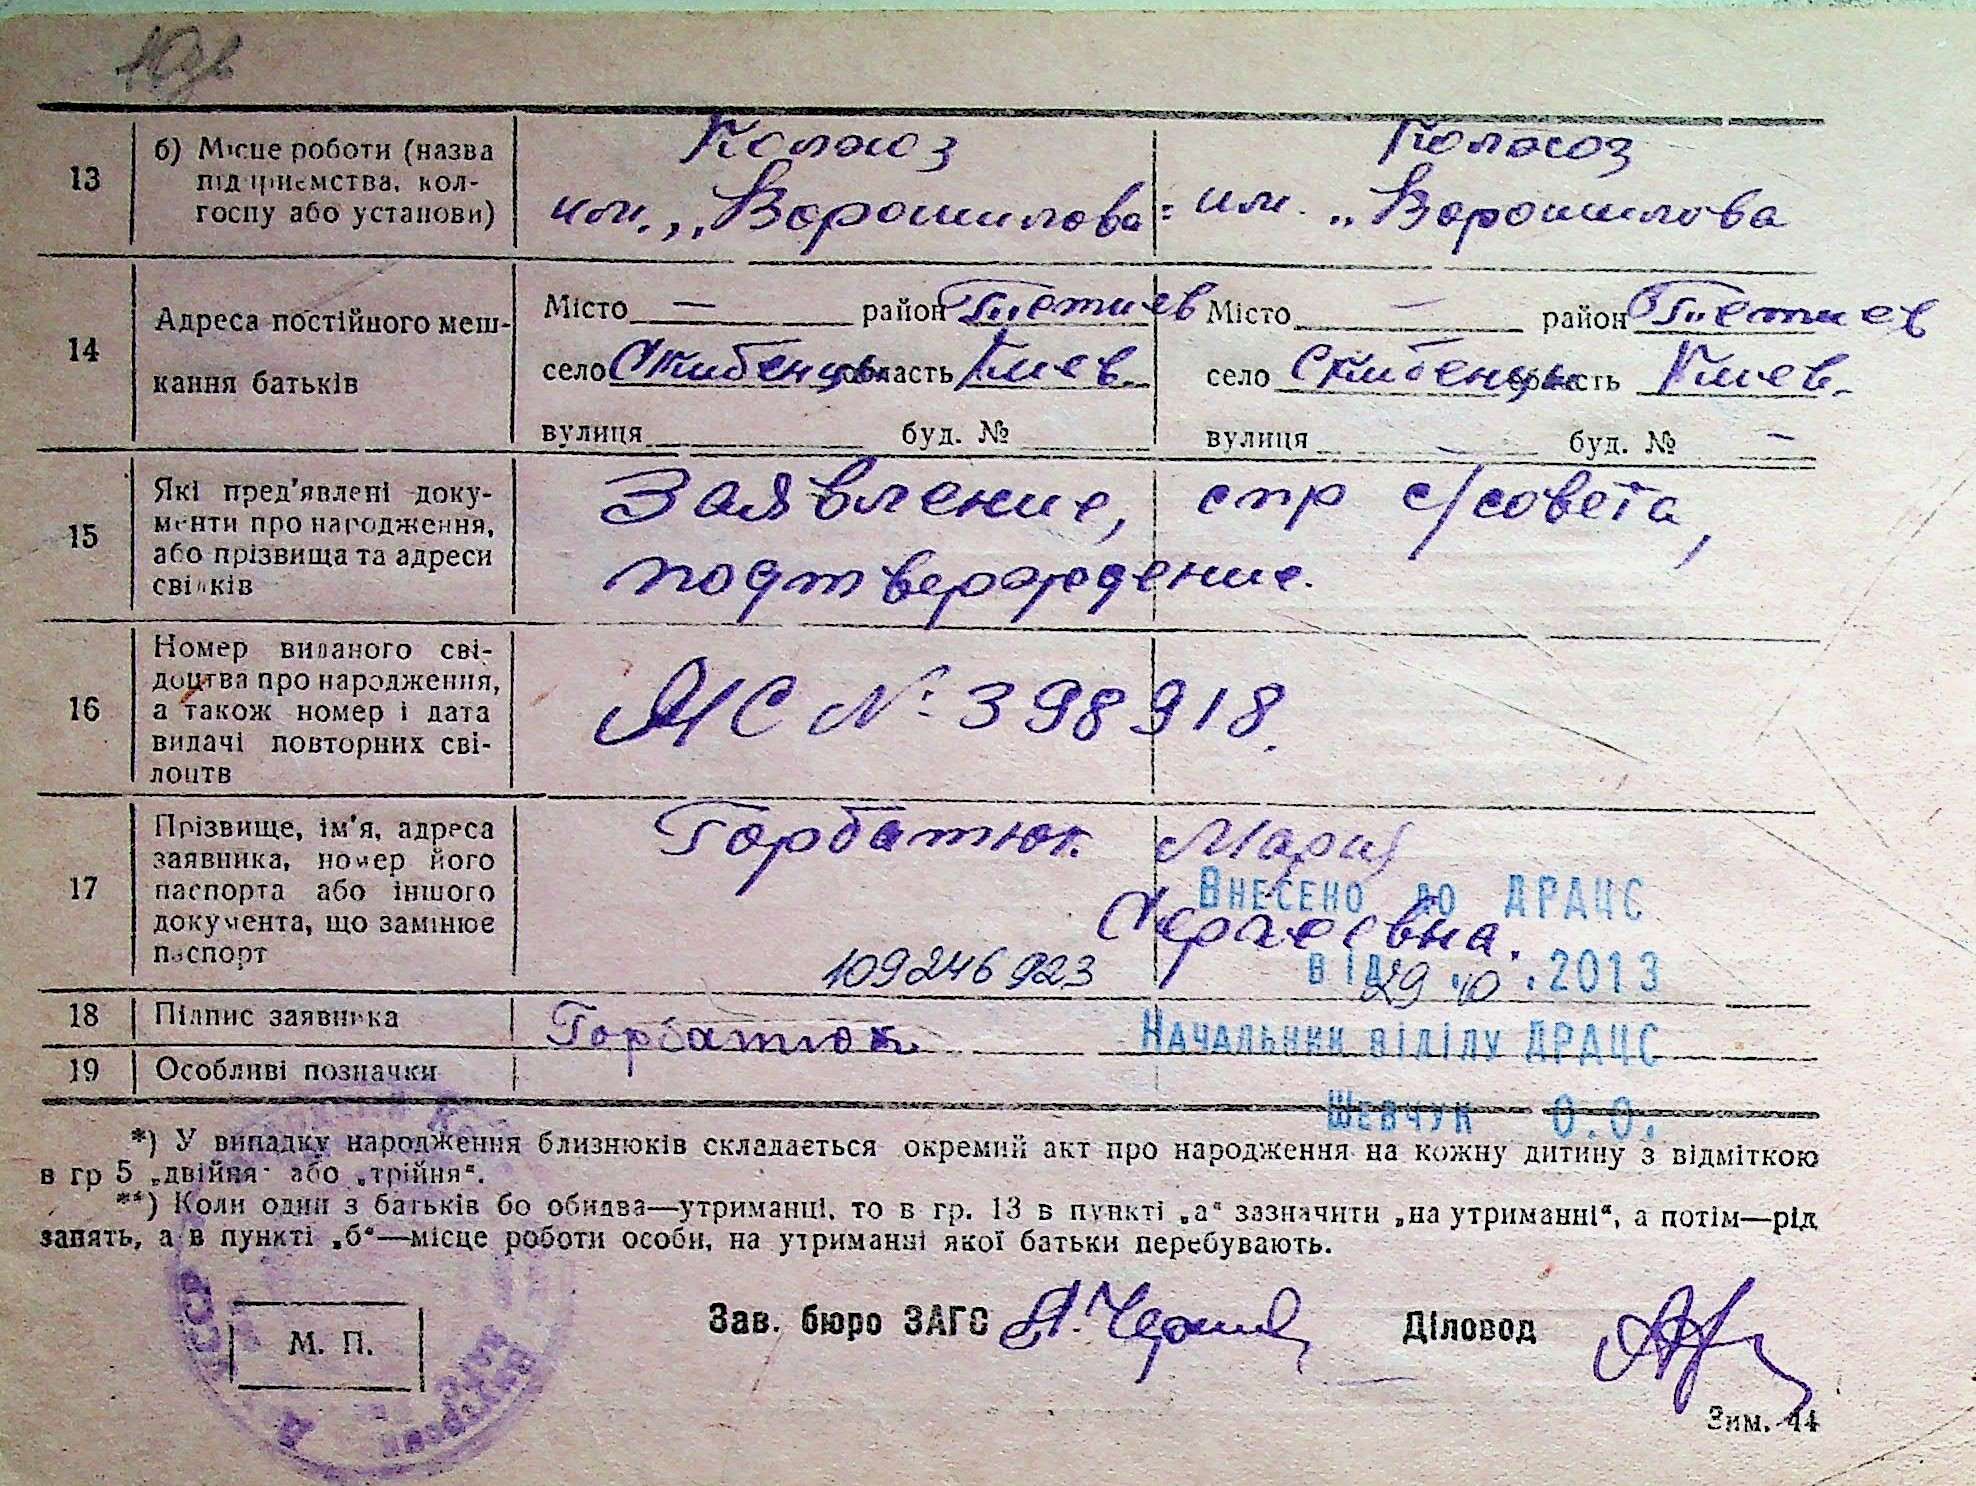 13
б) Місце роботи (назва
підприємства, кол-
госпу або установи)
Колхоз
им. „Ворошилова
Колхоз
им. „Ворошилова
14
Адреса постійного меш-
кання батьків
Місто — район Тетиев
село Скибенцы область Киев.
вулиця буд. №
Місто — район Тетиев
село Скибенцы область Киев.
вулиця — буд. № —
15
Які пред'явлені доку-
менти про народження,
або прізвища та адреси
свідків
Заявление, спр с/совета,
подтверждение.
16
Номер виданого сві-
доцтва про народження,
а також номер і дата
видачі повторних сві-
доцтв
ЯС № 398918.
17
Прізвище, ім'я, адреса
заявника, номер його
паспорта або іншого
документа, що замінює
паспорт
Горбатюк Мария
Сергеевна.
109246923
Внесено до ДРАЦС
від 29.10.2013
18
Підпис заявника
Горбатюк
Начальник відділу ДРАЦС
19
Особливі позначки
Шевчук О.О.
*) У випадку народження близнюків складається окремий акт про народження на кожну дитину з відміткою
в гр 5 „двійня" або „трійня".
**) Коли один з батьків бо обидва—утриманці, то в гр. 13 в пункті „а" зазначити „на утриманні", а потім—рід
занять, а в пункті „б"—місце роботи особи, на утриманні якої батьки перебувають.
М. П.
Зав. бюро ЗАГС
Діловод
Зим. 44